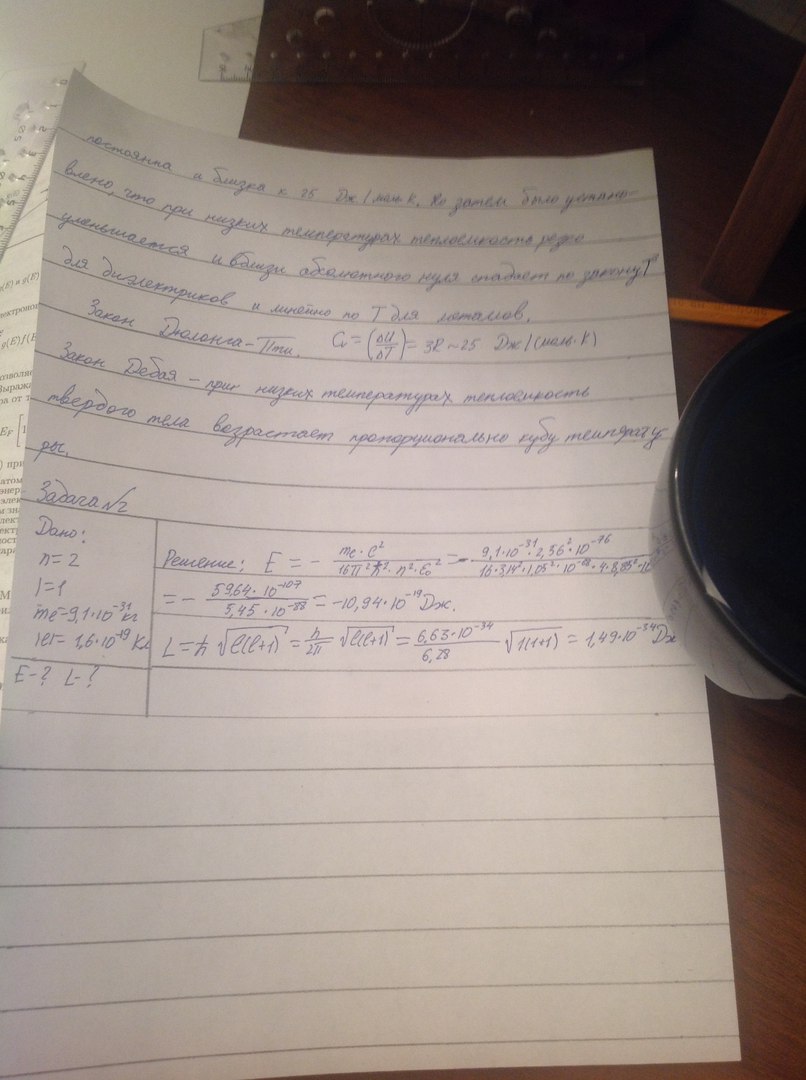 постоянна и близка к 25 Дж/моль·К. Но затем было устано-
влено, что при низких температурах теплоемкость резко
уменьшается и вблизи абсолютного нуля спадает по закону T³
для диэлектриков и линейно по T для металлов.
Закон Дюлонга-Пти. Cv = (ΔU/ΔT) = 3R ~ 25 Дж/(моль·К)
Закон Дебая - при низких температурах теплоемкость
твердого тела возрастает пропорционально кубу температу
ры.
Задача №2
Дано:
n=2
l=1
me=9,1·10⁻³¹ кг
|e|=1,6·10⁻¹⁹ Кл
E-? L-?
Решение: E = -
= - 5964·10⁻¹⁰⁷ / 5,45·10⁻⁸⁸ = -10,94·10⁻¹⁹ Дж.
L = ħ √l(l+1) = h/2π √l(l+1) = 6,63·10⁻³⁴ / 6,28 √1(1+1) = 1,49·10⁻³⁴ Дж